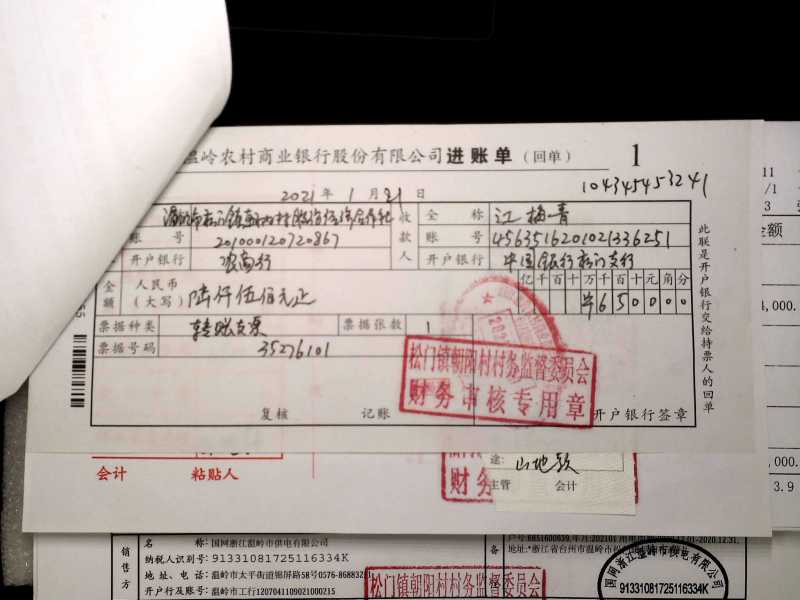 温岭农村商业银行股份有限公司 进账单 (回单) 1
2021 年 1 月 21 日 104345453241
收 全称 江梅青
账号 201000120720867 款 账号 4563516201021336251
开户银行 农商行 人 开户银行 中国银行松门支行
金额 人民币(大写) 陆仟伍佰元正 亿 千 百 十 万 千 百 十 元 角 分
6 5 0 0 0 0
票据种类 转账支票 票据张数 1
票据号码 35276101
复核 记账 开户银行签章
此联是开户银行交给持票人的回单
松门镇朝阳村村务监督委员会
财务审核专用章
会计 粘贴人
财务
途: 山地款
主管 会计
11
/1
3
金额
4,000.
,000.
3.9
销售方
名称: 国网浙江温岭市供电有限公司
纳税人识别号: 91331081725116334K
地址、电话: 温岭市太平街道锦屏路58号0576-8688832
开户行及账号: 温岭市工行1207041109021000215
备
户号:6651600639,年月:202101
-2020.12.31,
地址:*浙江省台州市温岭市
松门镇朝阳村村务监督委员会
国网浙江温岭市供电有限公司
91331081725116334K